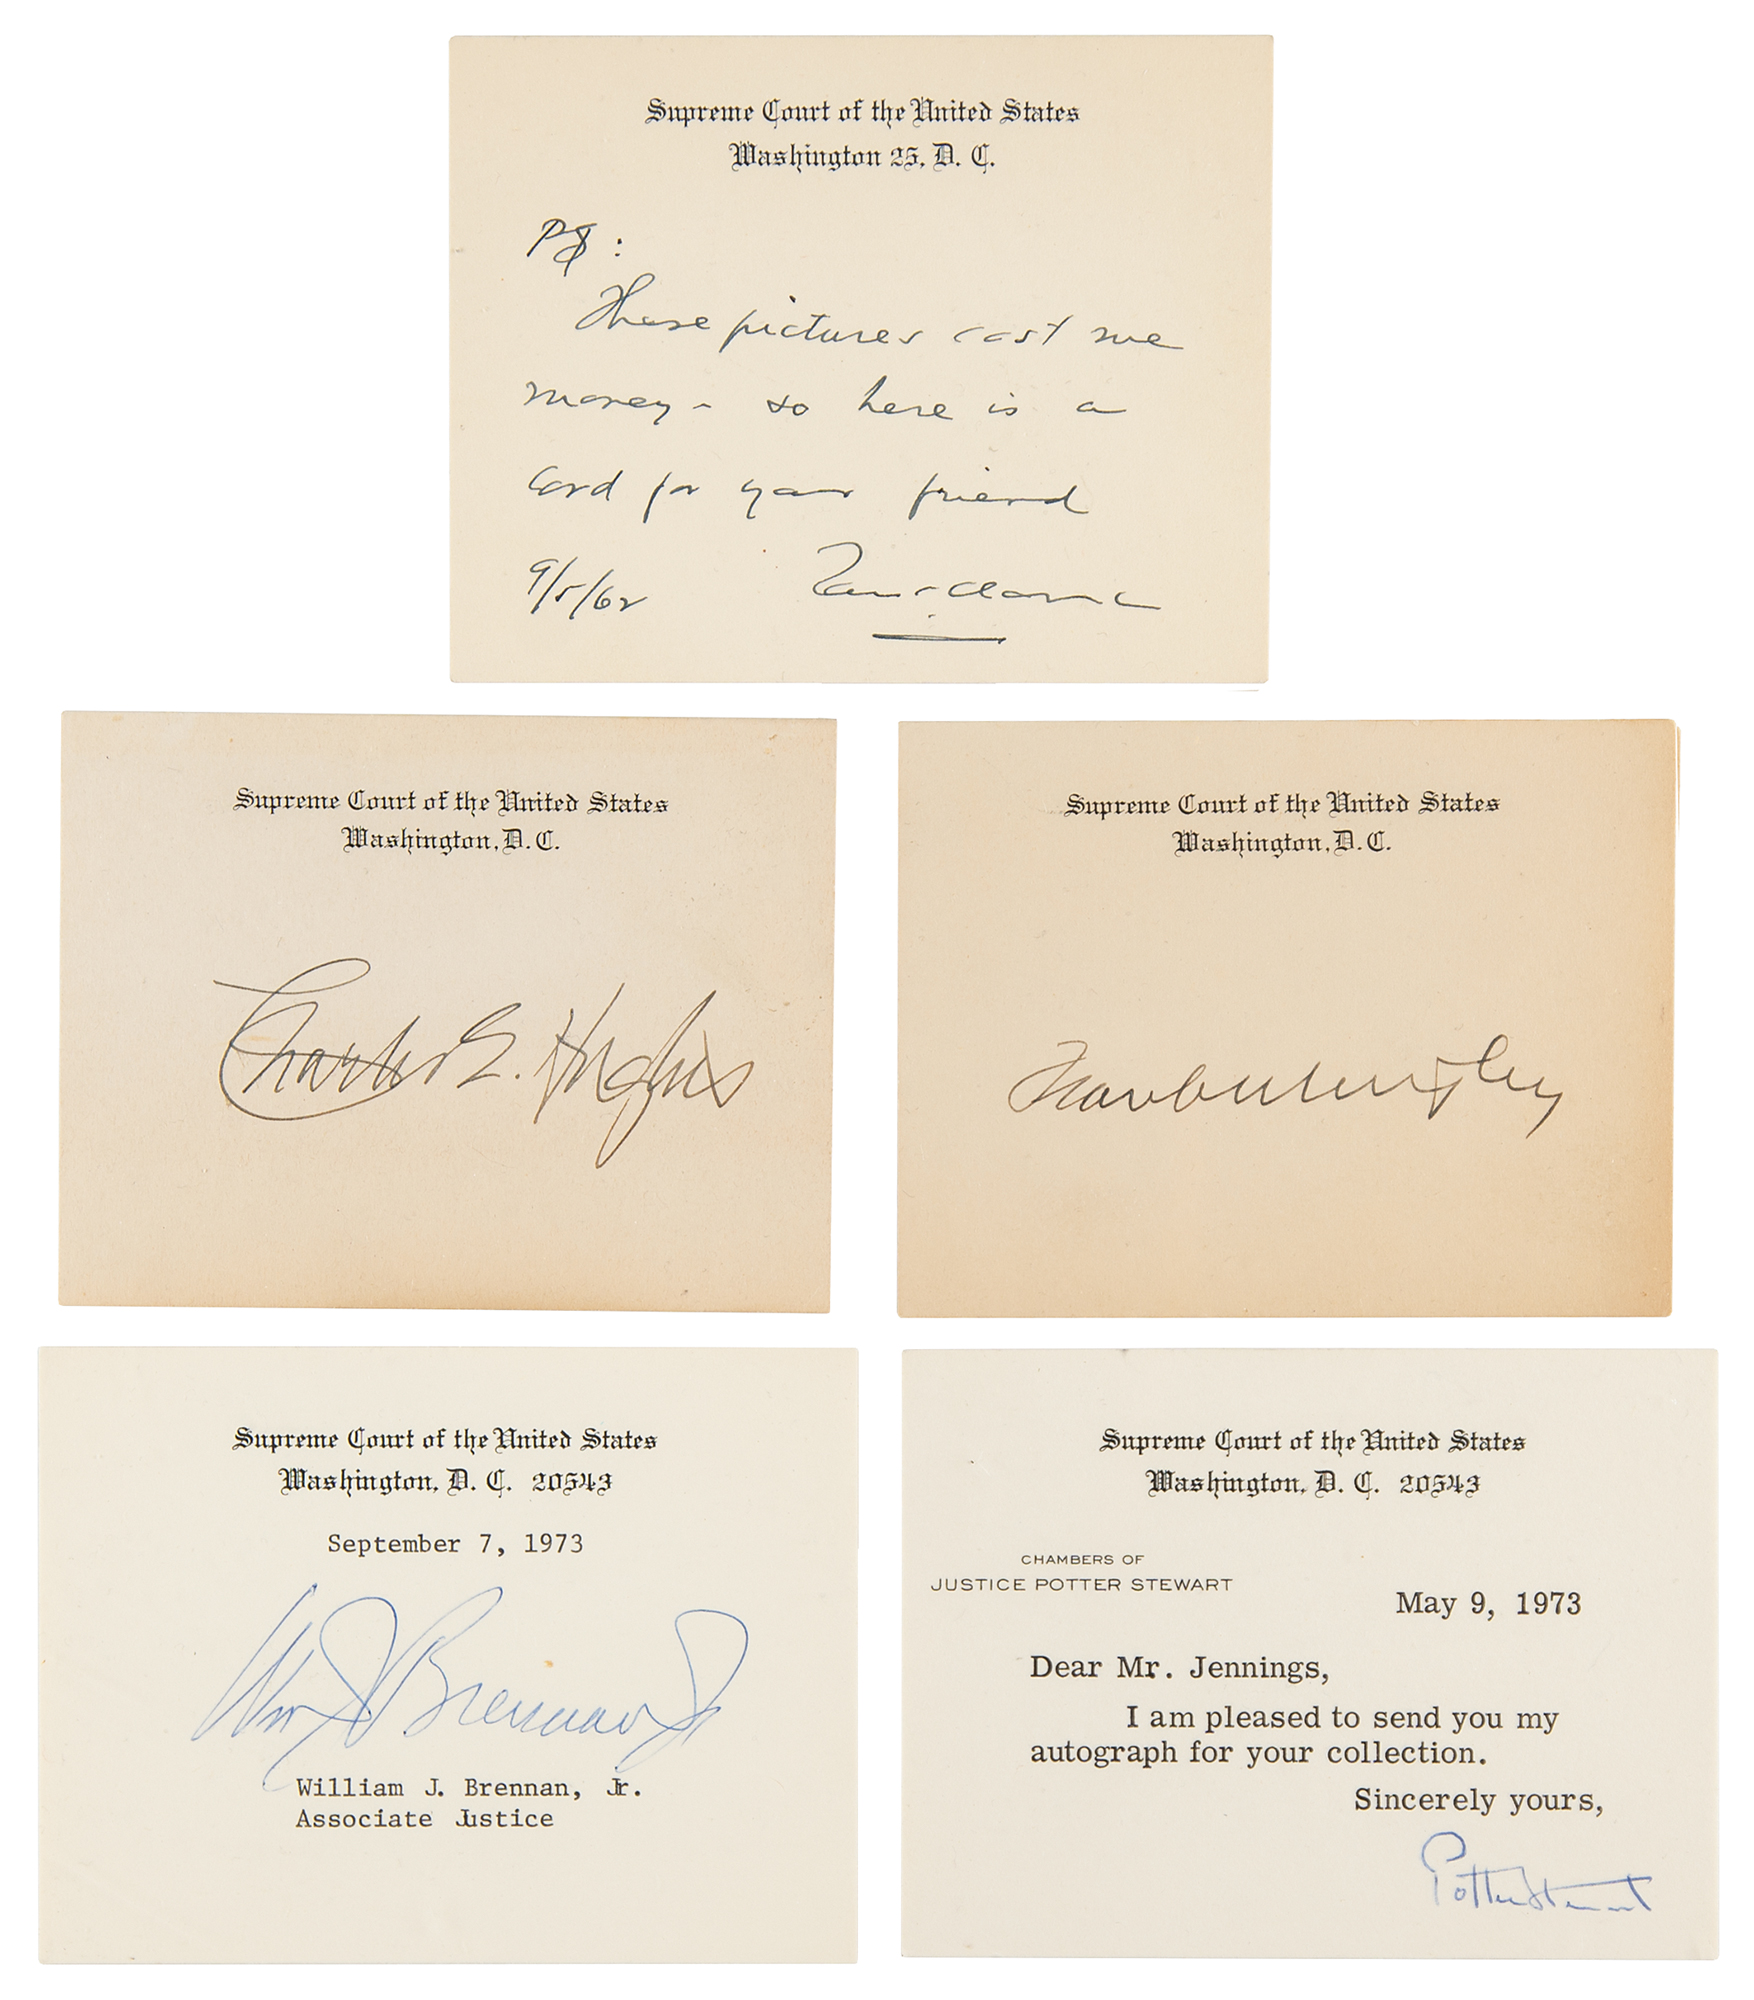 Supreme Court of the United States
Washington 25, D. C.
These pictures cost me
money - so here is a
card for your friend
9/5/62 Tom C Clark
Supreme Court of the United States
Washington, D. C.
Charles E. Hughes
Supreme Court of the United States
Washington, D. C.
Supreme Court of the United States
Washington, D. C. 20543
September 7, 1973
Wm J Brennan Jr
William J. Brennan, Jr.
Associate Justice
Supreme Court of the United States
Washington, D. C. 20543
CHAMBERS OF
JUSTICE POTTER STEWART
May 9, 1973
Dear Mr. Jennings,
I am pleased to send you my
autograph for your collection.
Sincerely yours,
Potter Stewart